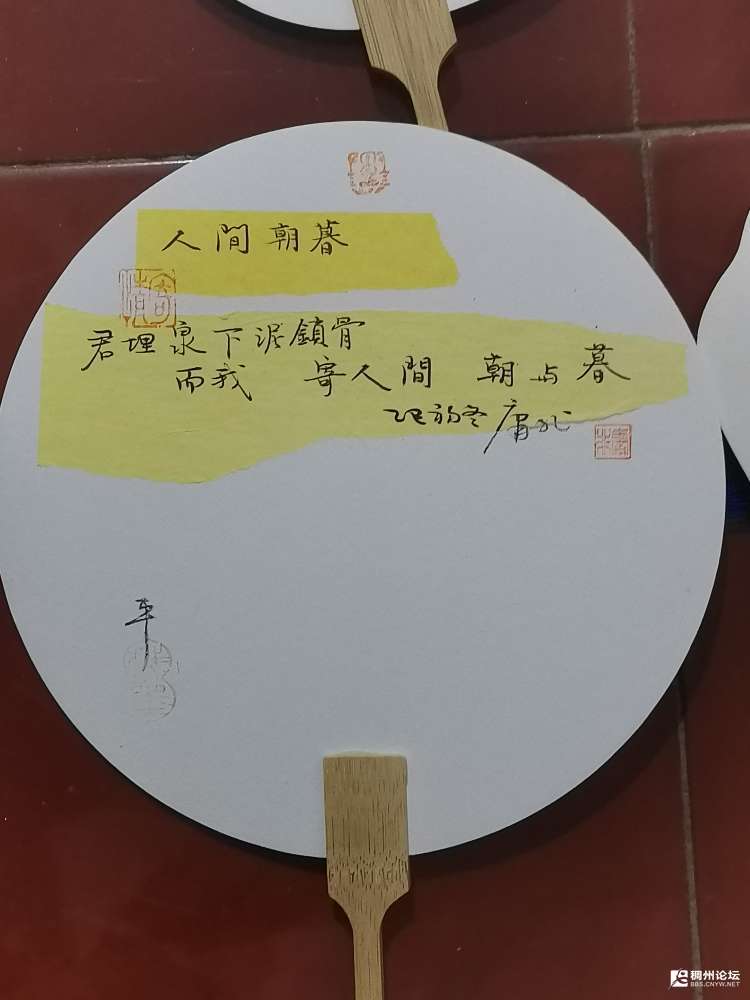 人間朝暮
君埋泉下泥鎖骨
而我 寄人間 朝与暮
稠州论坛
BBS.CNYW.NET